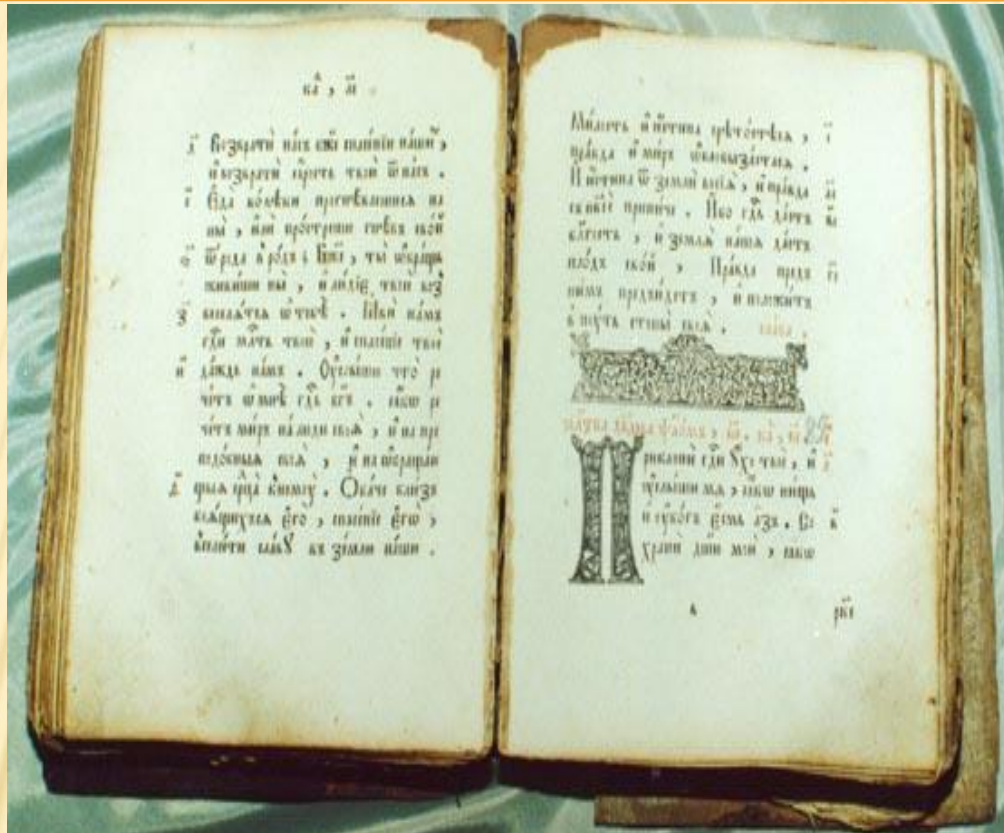 Возврати́ на́съ бж҃е спасе́нїи на́ши,
и҆ возвратѝ ꙗ҆́рость твою̀ ѿ на́съ.
Е҆да̀ во́вѣки прогнѣ́ваешисѧ на
ны̀, и҆лѝ простре́ши гнѣ́въ сво́й
ѿ ро́да в ро́дъ; Бж҃е, ты̀ ѡ҆бра́щь
живи́ши ны̀, и҆ лю́дїе твоѝ воз
веселѧ́тсѧ ѡ҆ тебѣ̀. Ꙗ҆вѝ на́мъ
гд҃и млⷭ҇ть твою̀, и҆ спасе́нїе твоѐ
да́ждь на́мъ. Оу҆слы́шꙋ что̀ ре
че́тъ ѡ҆ мнѣ̀ гдⷭ҇ь бг҃ъ. ꙗ҆́кѡ ре
че́тъ ми́ръ на лю́ди своѧ̀, и҆ на пре
подо́бныѧ своѧ̀, и҆ на ѡ҆браща́ю
щыѧ срⷣца̀ к немꙋ̀. Ѻ҆ба́че бли́зъ
боѧ́щихсѧ є҆гѡ̀, спасе́нїе є҆гѡ̀,
всели́ти сла́вꙋ въ зе́млю на́шꙋ.
Ми́лость и҆ и҆́стина срѣто́стѣсѧ,
пра́вда и҆ ми́ръ ѡ҆блобыза́стасѧ.
И҆́стина ѿ землѝ возсїѧ̀, и҆ пра́вда
съ нб҃сѐ прини́че. И҆́бо гдⷭ҇ь да́стъ
бл҃гость, и҆ землѧ̀ на́ша да́стъ
пло́дъ сво́й, Пра́вда предъ
ни́мъ предъи́детъ, и҆ положи́тъ
в пꙋ́ть стопы̀ своѧ̀. сла́ва.
моли́тва дв҃да ѱало́мъ,
Приклонѝ гд҃и ᲂу҆́хо твоѐ, и҆
ᲂу҆слы́ши мѧ̀, ꙗ҆́кѡ ни́щъ
и҆ ᲂу҆бо́гъ є҆́смь а҆́зъ. Со
хранѝ дш҃ꙋ мою̀, ꙗ҆́кѡ
рк҃є